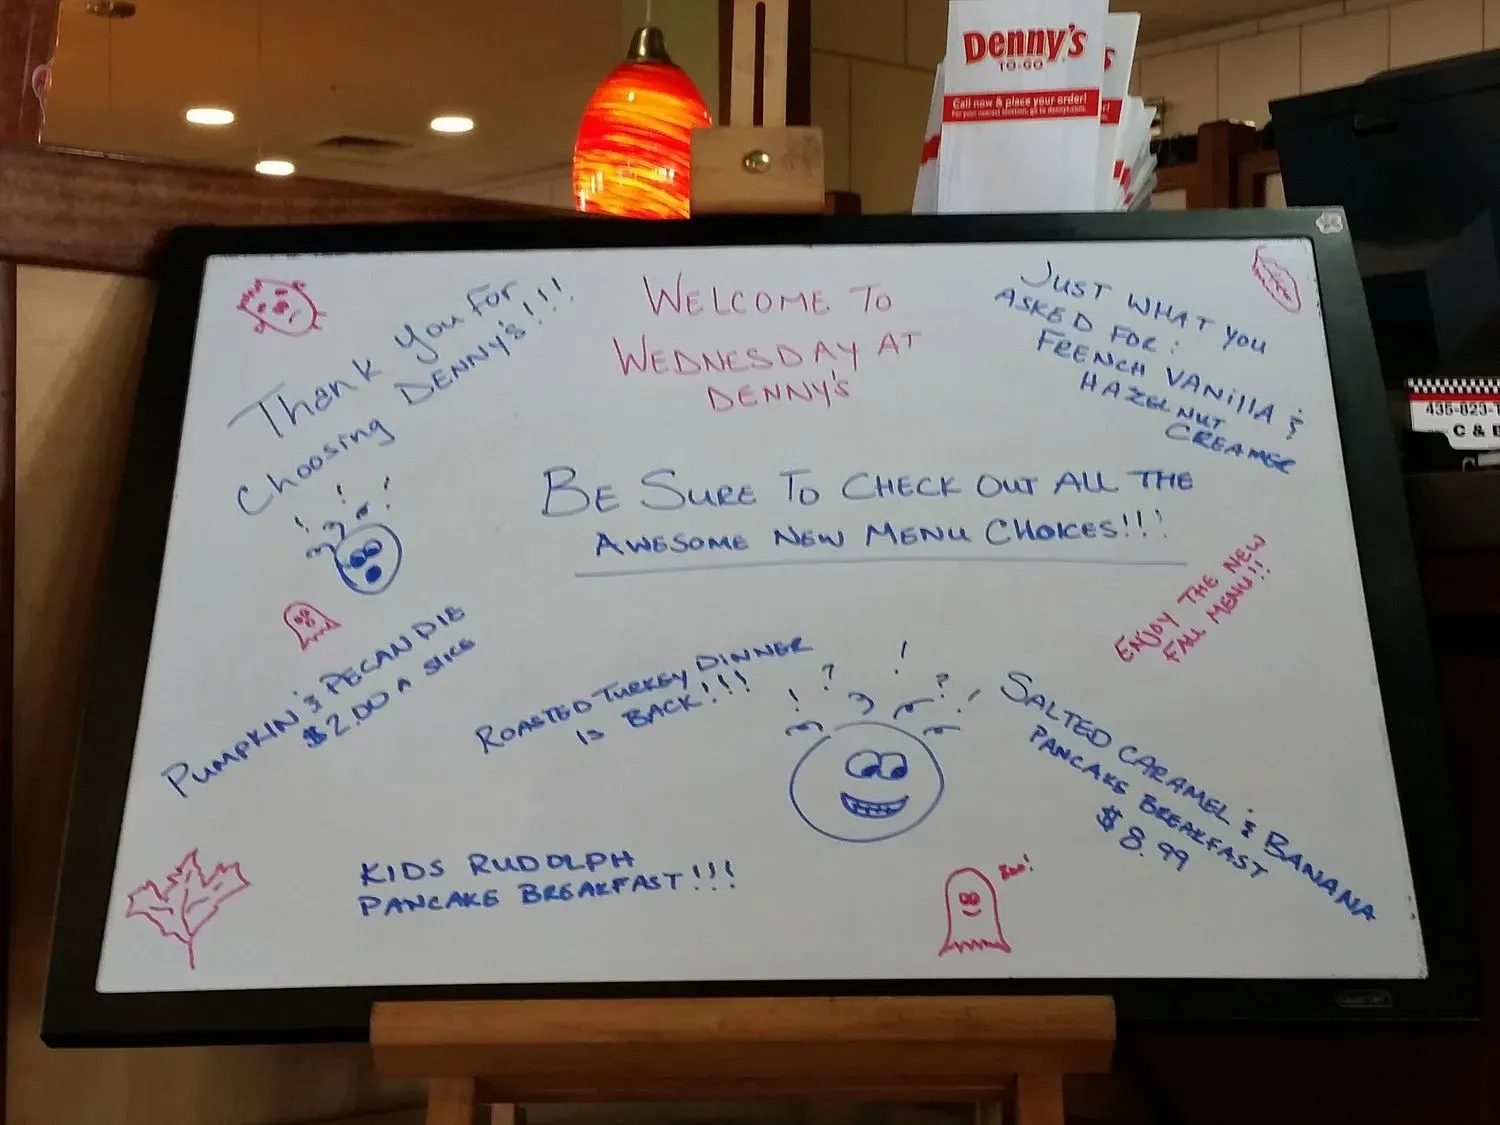 Denny's
TO-GO
Call now & place your order!
Thank You For
Choosing DENNY'S!!!
WELCOME TO
WEDNESDAY AT
DENNY'S
JUST WHAT YOU
ASKED FOR:
FRENCH VANIllA &
HAZELNUT
CREAMER
BE SURE TO CHECK OUT ALL THE
AWESOME NEW MENU CHOICES!!!
ENJOY THE NEW
FALL MENU!!
PUMPKIN & PECAN PIE
$2.00 A SLICE
ROASTED TURKEY DINNER
IS BACK!!!
SALTED CARAMEL & BANANA
PANCAKE BREAKFAST
$8.99
KIDS RUDOLPH
PANCAKE BREAKFAST!!!
Boo!
435-823-
C &